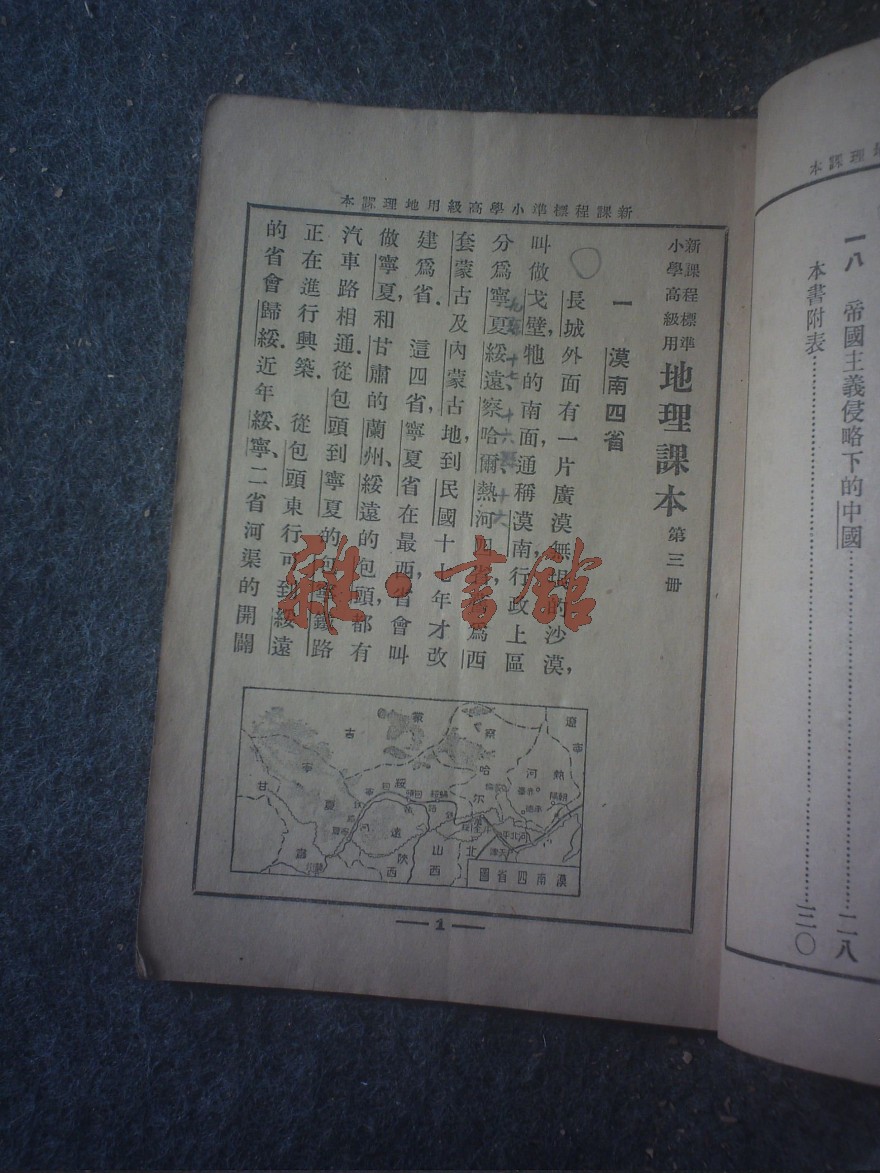 本課理地用級高學小準標程課新
新課程標準
小學高級用
地理課本 第三册
一 漠南四省
長城外面有一片廣漠無垠的沙漠,
叫做戈壁,牠的南面,通稱漠南,行政上區
分爲寧夏、綏遠、察哈爾、熱河四省,爲西
套蒙古及內蒙古地,到民國十七年才改
建爲省.這四省,寧夏省在最西,省會叫
做寧夏,和甘肅的蘭州、綏遠的包頭,都有
汽車路相通.從包頭到寧夏的包寧鐵路
正在進行興築.從包頭東行可到綏遠
的省會歸綏.近年綏、寧、二省河渠的開闢
漠南四省圖
1
一八 帝國主義侵略下的中國 二八
本書附表 三〇
雜·書館